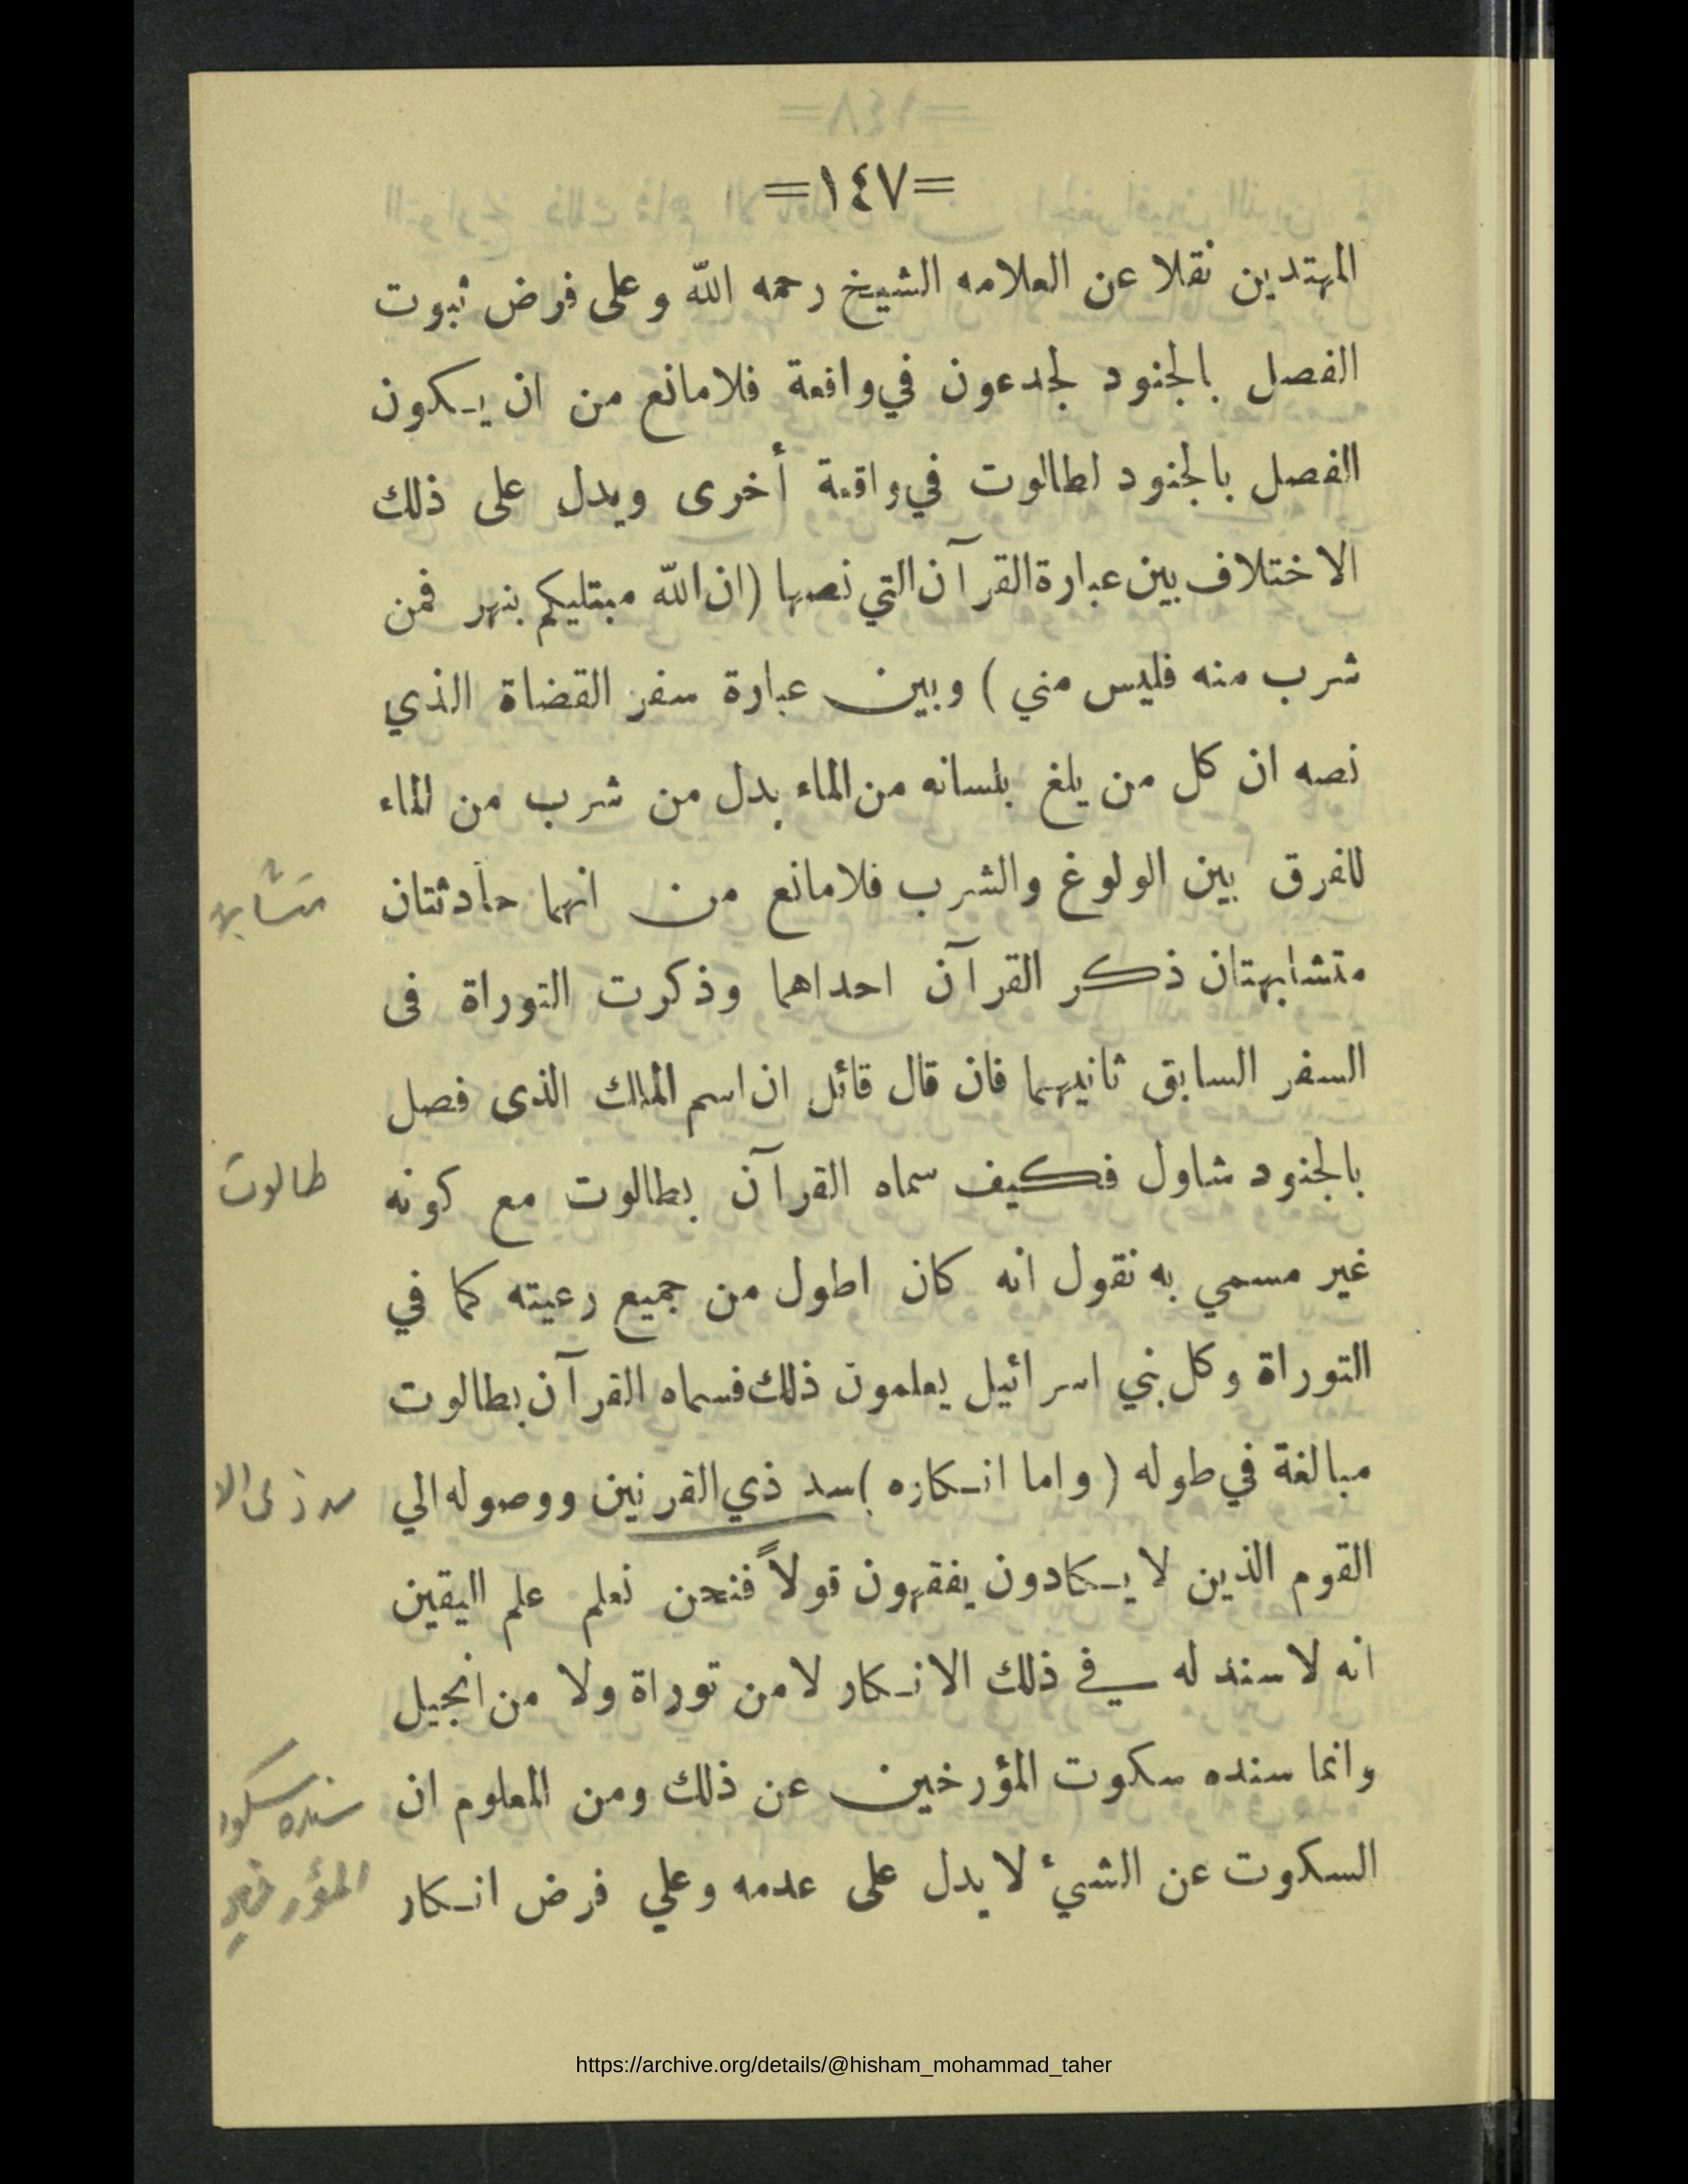 =١٤٧=
المهتدين نقلا عن العلامه الشيخ رحمه الله وعلى فرض ثبوت
الفصل بالجنود لجدعون في واقعة فلا مانع من ان يكون
الفصل بالجنود لطالوت في واقعة أخرى ويدل على ذلك
الاختلاف بين عبارة القرآن التي نصها (ان الله مبتليكم بنهر فمن
شرب منه فليس مني) وبين عبارة سفر القضاة الذي
نصه ان كل من يلغ بلسانه من الماء بدل من شرب من الماء
للفرق بين الولوغ والشرب فلا مانع من انهما حادثتان
متشابهتان ذكر القرآن احداهما وذكرت التوراة فى
السفر السابق ثانيهما فان قال قائل ان اسم الملك الذى فصل
بالجنود شاول فكيف سماه القرآن بطالوت مع كونه
طالوت
غير مسمي به نقول انه كان اطول من جميع رعيته كما في
التوراة وكل بني اسرائيل يعلمون ذلك فسماه القرآن بطالوت
مبالغة في طوله (واما انكاره) سد ذي القرنين ووصوله الي
القوم الذين لا يكادون يفقهون قولاً فنحن نعلم علم اليقين
انه لا سند له في ذلك الانكار لا من توراة ولا من انجيل
وانما سنده سكوت المؤرخين عن ذلك ومن المعلوم ان
سنده سكوت
السكوت عن الشيء لا يدل على عدمه وعلي فرض انكار
المؤرخين
https://archive.org/details/@hisham_mohammad_taher